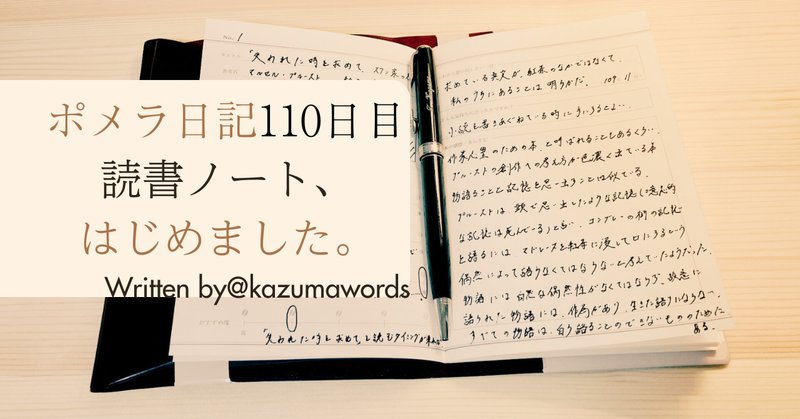 No. 1
「失われた時を求めて
マルセル・プルースト
ポメラ日記110日目
読書ノート、
はじめました。
Written by@kazumawords
おすすめ度
「失われた時を求めて」を読むタイミングが
求めている真実が、紅茶のなかではなくて、
私のうちにあることは明らかだ。 109
小説を書きあぐねている時に
のための本、と呼ばれることもあるくらい、
プルーストの創作での考え方が色濃く出ている本
物語ることと記憶を思い出すことは似ている。
プルーストは、頭で思い出したような記憶(意志的
な記憶は死んでいる)、コンブレーの街の記憶
を語るには マドレーヌを紅茶に浸して口にするという
偶然によって語りなくてはならないと考えていたようだった。
物語には自然な偶然性がなくてはならず、故意に
語られた物語には、作為があり、生きた語りにならない。
すべての物語は、自ら語ることのできないもののために
ある。